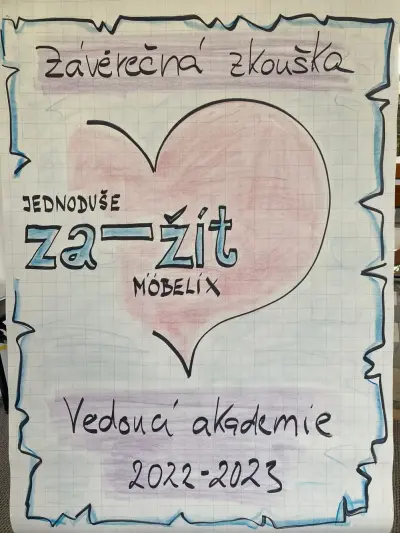 Závěrečná zkouška
JEDNODUŠE
za-žít
MÖBELIX
Vedoucí akademie
2022-2023